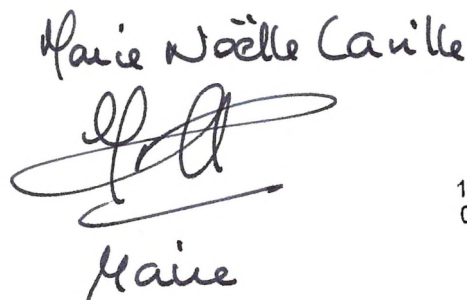 Marie Noëlle Caville
Maire